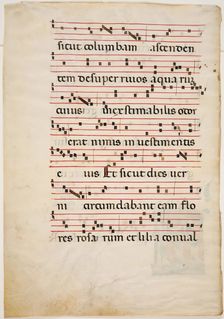 sicut columbam ascenden
tem desuper rivos aquarum
cuius inextimabilis odor
erat nimis in vestimentis
eius Et sicut dies ver
ni circumdabant eam flo
res rosarum et lilia convall